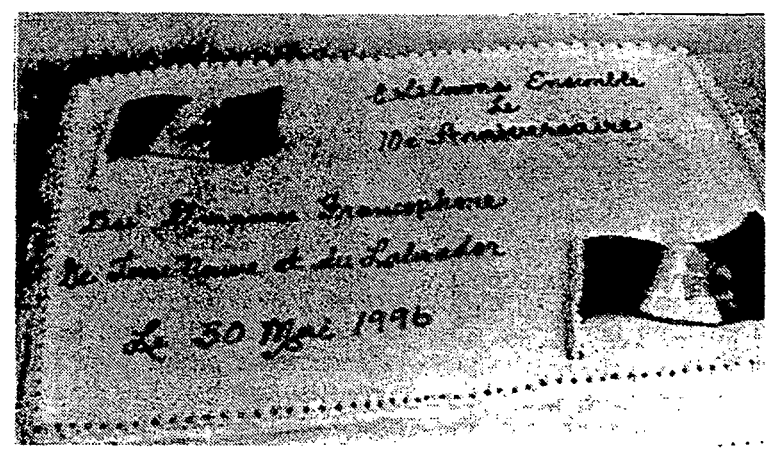 Célébrons Ensemble
Le
10e Anniversaire
Du Drapeau Francophone
De Terre Neuve et du Labrador
Le 30 Mai 1996